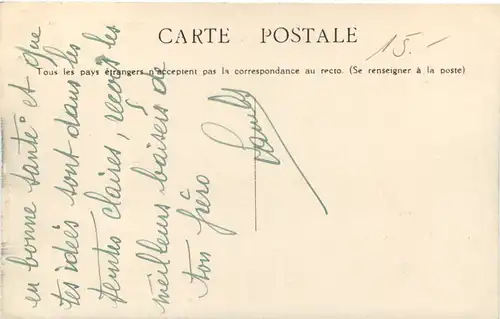 CARTE POSTALE
15.-
Tous les pays étrangers n'acceptent pas la correspondance au recto. (Se renseigner à la poste)
en bonne santé et que
tes idées sont dans les
teintes claires, reçois les
meilleurs baisers de
ton frère